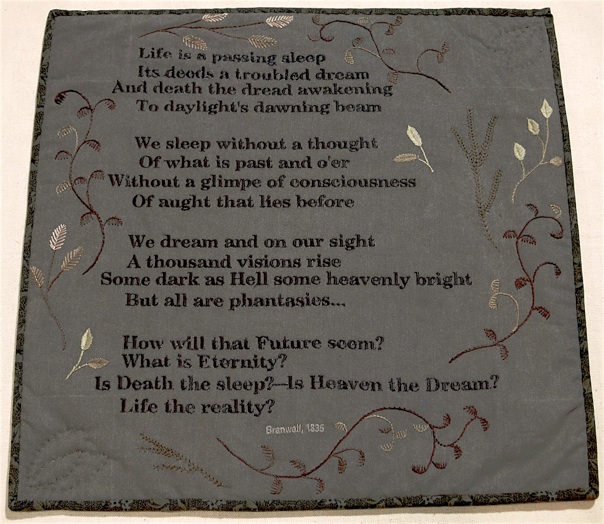 Life is a passing sleep
Its deeds a troubled dream
And death the dread awakening
To daylight's dawning beam
We sleep without a thought
Of what is past and o'er
Without a glimpe of consciousness
Of aught that lies before
We dream and on our sight
A thousand visions rise
Some dark as Hell some heavenly bright
But all are phantasies...
How will that Future seem?
What is Eternity?
Is Death the sleep?—Is Heaven the Dream?
Life the reality?
Branwell, 1835